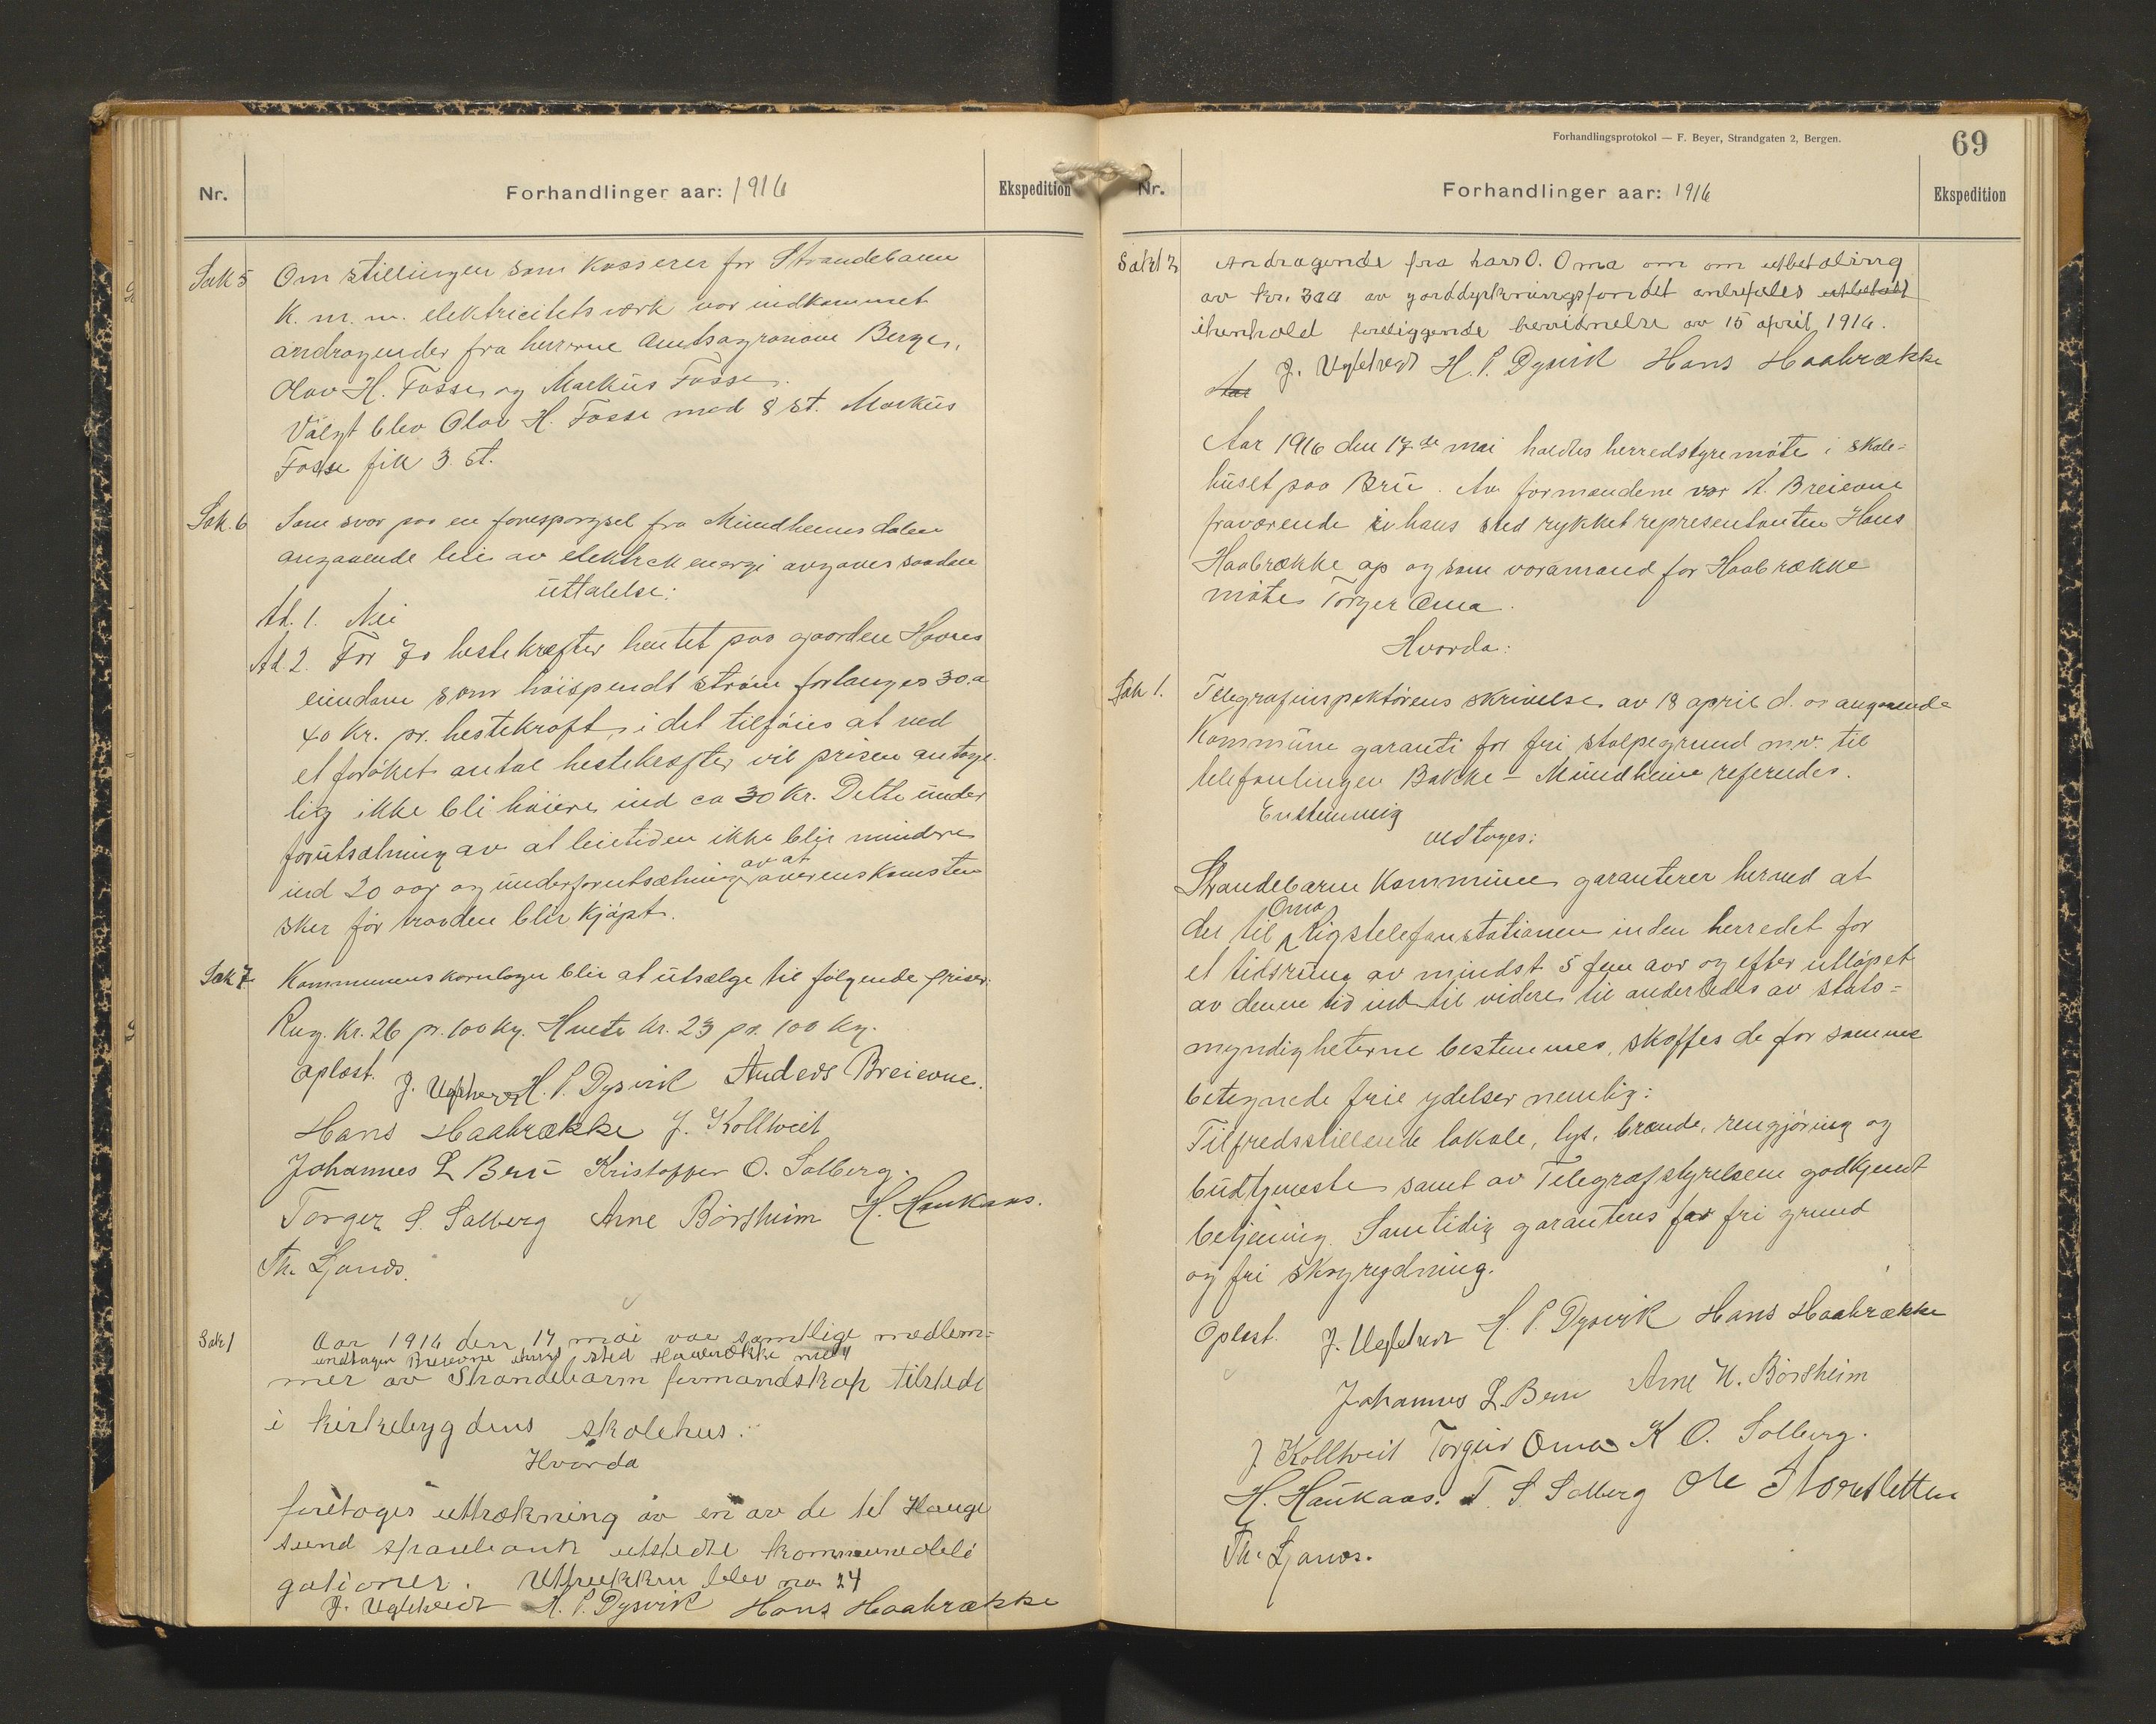 Nr. Forhandlinger aar: 1916 Ekspedition
Sak 5 Om stillingen som kasserer for Strandebarm
k. m. m. elektricitetsværk var indkommet
andragender fra herrerne amtsagronom Berge,
Olav H. Fosse og Markus Fosse.
Valgt blev Olav H. Fosse med 8 st. Markus
Fosse fik 3 st.
Sak. 6 Som svar paa en forespørgsel fra Mundheimsdalen
angaaende leie av elektrisk energi avgaves saadan
uttalelse:
Ad. 1. Nei
Ad. 2. For 70 hestekræfter hentet paa gaarden
eiendom som høispendt strøm forlanges 30 a
40 kr. pr. hestekraft, i det tilføies at ved
et forøket antal hestekræfter vil prisen antage-
lig ikke bli høiere ind ca 30 kr. Dette under
forutsætning av at leietiden ikke blir mindre
ind 20 aar og underforutsætning av at overenskomsten
sker før traaden blir kjøpt.
Sak 7 Kommunens kornlager blir at utsælge til følgende priser:
Rug. kr. 26 pr. 100 kg. Hvete kr. 23 pr. 100 kg.
Oplæst. J. Uglehvedt H. P. Dysvik Anders Breievne.
Hans Haabrække J. Kolltveit
Johannes L Bru Kristoffer O. Solberg.
Torger S. Solberg Arne Børsheim H. Haukaas.
Th. Ljones.
Sak 1 Aar 1916 den 17 mai var samtlige medlem=
undtagen Breievne i hvis sted Haabrække møtt
mer av Strandebarm formandskap tilstede
i kirkebygdens skolehus.
Hvorda
foretoges uttrækning av en av de til Hauge
sund sparebank utstedte kommuneobli
gationer. Uttrukken blev no 24
J. Uglehvedt H. P. Dysvik Hans Haabrække
Forhandlingsprotokol — F. Beyer, Strandgaten 2, Bergen.
69
Nr. Forhandlinger aar: 1916 Ekspedition
Sak 2 Andragende fra Lars O. Oma om om utbetaling
av kr. 300 av jorddyrkningsfondet anbefales utbetalt
ihenhold foreliggende bevidnelse av 15 april 1916.
J. Uglehvedt H. P. Dysvik Hans Haabrække
Aar
Aar 1916 den 17de mai holdtes herredstyremøte i skole=
huset paa Bru. Av formændene var A. Breievne
fraværende i hans sted rykket representanten Hans
Haabrække op og som varamand for Haabrække
møtes Torger Oma.
Hvorda:
Sak 1. Telegrafinspektørens skrivelse av 18 april d. a. angaaende
Kommune garanti for fri stolpegrund m.v. til
telefonlinjen Bakke – Mundheim referedes.
Enstemmig
vedtoges:
Strandebarm kommune garanterer herved at
der til Oma Rigstelefonstationen inden herredet for
et tidsrum av mindst 5 fem aar og efter utløpet
av denne tid ind til videre til anderledes av stats=
myndigheterne bestemmes, skaffes de for samme
betegnede frie ydelser nemlig:
Tilfredsstillende lokale, lys, brænde, rengjøring og
budtjeneste samt av Telegrafstyrelsen godkjendt
betjening. Samtidig garanteres for fri grund
og fri skogrydning.
Oplæst. J. Uglehvedt H. P. Dysvik Hans Haabrække
Johannes L. Bru Arne N. Børsheim
J Kolltveit Torgeir Oma K O. Solberg.
H. Haukaas. T. S. Solberg Ole Storesletten
Th. Ljones.